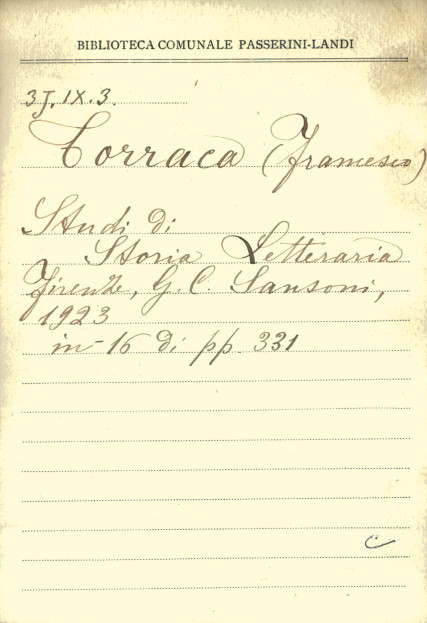 BIBLIOTECA COMUNALE PASSERINI-LANDI
3J.IX.3.
Torraca (Francesco)
Studi di
Storia Letteraria
Firenze, G. C. Sansoni,
1923
in-16 di pp. 331